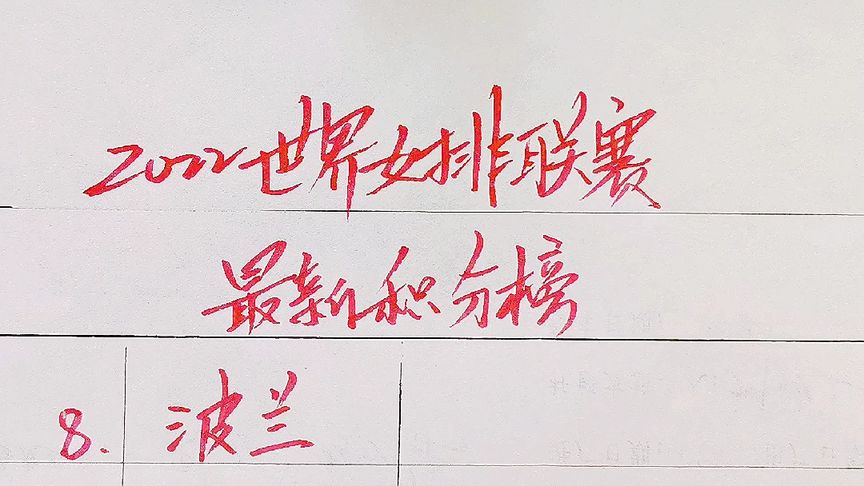 2022世界女排联赛
最新积分榜
8. 波兰